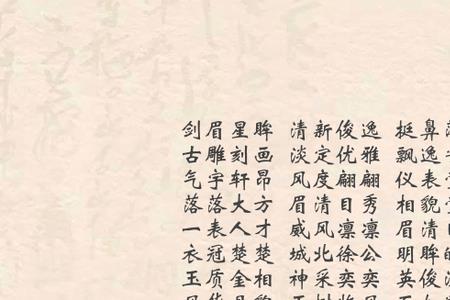 剑眉星眸 清新俊逸 挺鼻
古雕刻画 淡定优雅 飘逸
气宇轩昂 风度翩翩 仪表
落落大方 眉清目秀 相貌
一表人才 威风凛凛 眉清
衣冠楚楚 城北徐公 明眸
玉质金相 神采奕奕 英俊